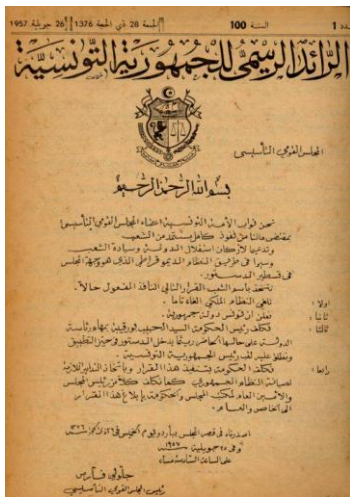 عدد 1 السنة 100 الجمعة 28 ذي الحجة 1376 26 جويلية 1957
الرائد الرسمي للجمهورية التونسية
المجلس القومي التأسيسي
بسم الله الرحمن الرحيم
نحن نواب الأمة التونسية أعضاء المجلس القومي التأسيسي
بمقتضى مالنا من نفوذ كامل مستمد من الشعب
وتدعيما لأركان استقلال الدولة وسيادة الشعب
وسيرا في طريق النظام الديمقراطي الذي هو وجهة المجلس
في تسطير الدستور
نتخذ باسم الشعب القرار التالي النافذ المفعول حالا
أولا : نلغي النظام الملكي إلغاء تاما
ثانيا : نعلن أن تونس دولة جمهورية
ثالثا : نكلف رئيس الحكومة السيد الحبيب بورقيبة بمهام رئاسة
الدولة على حالها الحاضر ريثما يدخل الدستور في حيز التطبيق
ونطلق عليه لقب رئيس الجمهورية التونسية
رابعا : نكلف الحكومة بتنفيذ هذا القرار وباتخاذ التدابير اللازمة
لصيانة النظام الجمهوري كما نكلف كلا من رئيس المجلس
والأمين العام لمكتب المجلس والحكومة بإبلاغ هذا القرار
إلى الخاص والعام
أصدرناه في قصر المجلس بباردو يوم الخميس في
وفي 25 جويلية سنة 1957
على الساعة السادسة مساء
جلولي فارس
رئيس المجلس القومي التأسيسي